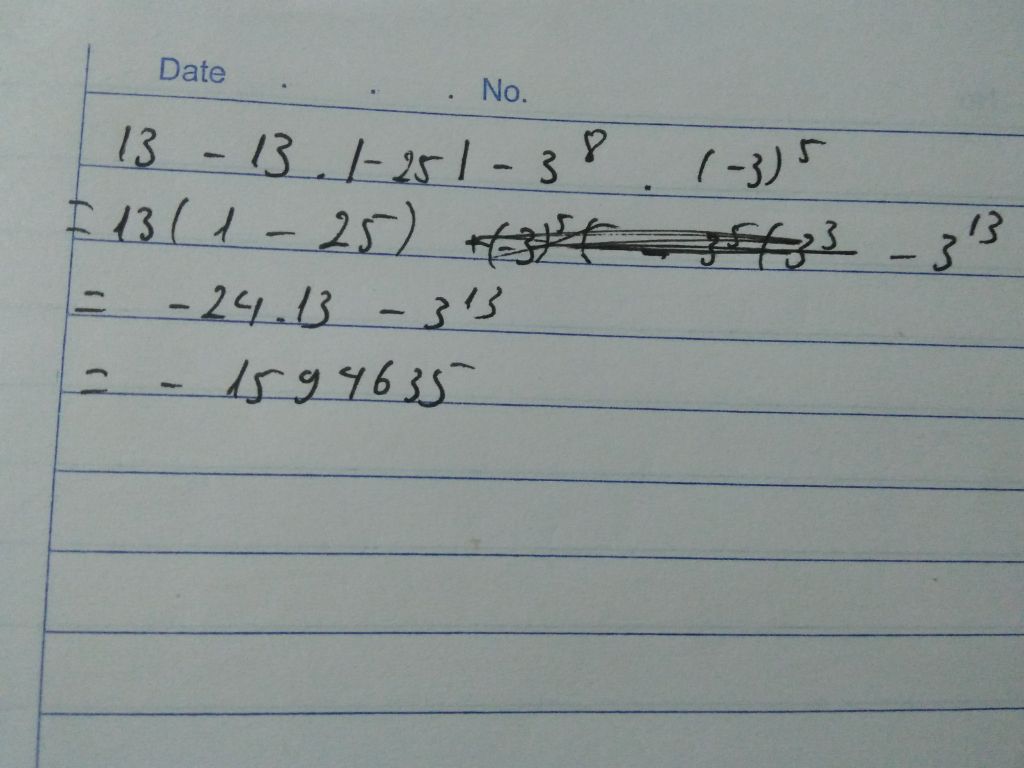 Date . . . No.
13 - 13 . |-25| - 3⁸ . (-3)⁵
= 13( 1 - 25) - 3¹³
= -24.13 - 3¹³
= - 1594635